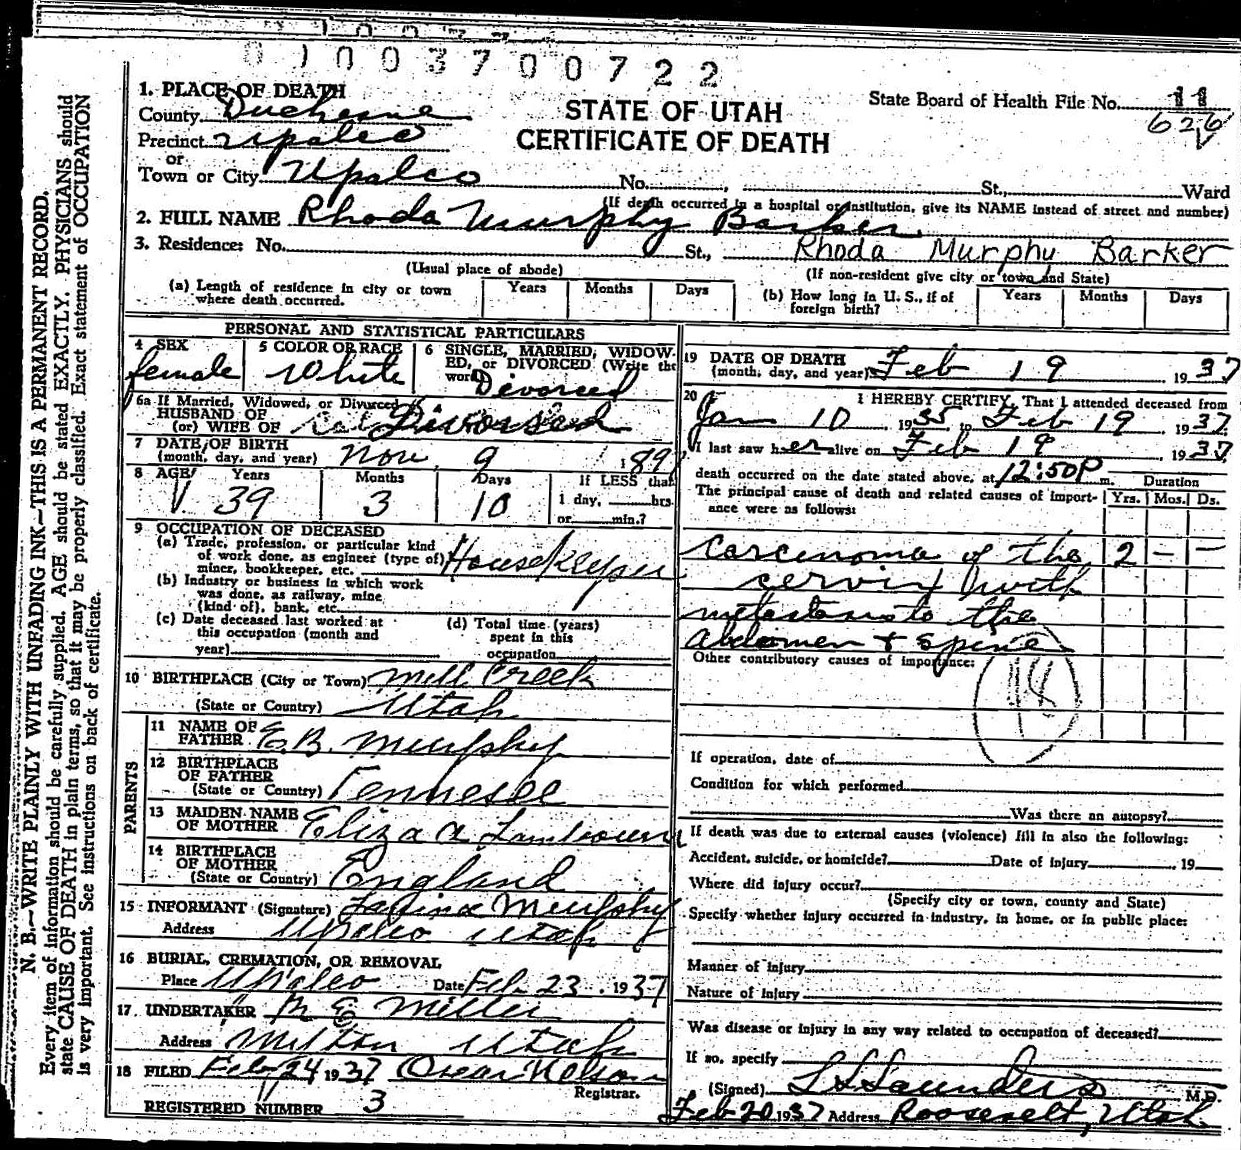 0 1003700722
1. PLACE OF DEATH
County Duchesne
Precinct Upalco
or
Town or City Upalco No. , St., Ward
(If death occurred in a hospital or institution, give its NAME instead of street and number)
STATE OF UTAH
CERTIFICATE OF DEATH
State Board of Health File No. 11
626
2. FULL NAME Rhoda Murphy Barker
3. Residence: No. St., Rhoda Murphy Barker
(Usual place of abode) (If non-resident give city or town and State)
(a) Length of residence in city or town where death occurred. Years Months Days
(b) How long in U. S., if of foreign birth? Years Months Days
PERSONAL AND STATISTICAL PARTICULARS
4 SEX
female
5 COLOR OR RACE
White
6 SINGLE, MARRIED, WIDOWED, or DIVORCED (Write the word)
Divorced
6a If Married, Widowed, or Divorced
HUSBAND OF
(or) WIFE OF Divorsed
7 DATE OF BIRTH
(month, day, and year) Nov 9 189
8 AGE Years Months Days If LESS than
39 3 10 1 day, hrs.
or min.?
9 OCCUPATION OF DECEASED
(a) Trade, profession, or particular kind
of work done, as engineer (type of)
miner, bookkeeper, etc. Housekeeper
(b) Industry or business in which work
was done, as railway, mine
(kind of), bank, etc.
(c) Date deceased last worked at
this occupation (month and
year)
(d) Total time (years)
spent in this
occupation
10 BIRTHPLACE (City or Town) Mill Creek
(State or Country) Utah
PARENTS
11 NAME OF
FATHER E. B. Murphy
12 BIRTHPLACE
OF FATHER
(State or Country) Tennesee
13 MAIDEN NAME
OF MOTHER Eliza A
14 BIRTHPLACE
OF MOTHER
(State or Country) England
15 INFORMANT (Signature) Murphy
Address Upalco Utah
16 BURIAL, CREMATION, OR REMOVAL
Place Upalco Date Feb 23, 1937
17 UNDERTAKER E Miller
Address Utah
18 FILED Feb 24 1937 Oscar Nelson
Registrar.
REGISTERED NUMBER 3
19 DATE OF DEATH
(month, day, and year) Feb 19 1937
20 I HEREBY CERTIFY, That I attended deceased from
Jan 10, 1935 to Feb 19, 1937
I last saw her alive on Feb 19 1937
death occurred on the date stated above, at 12:50P m. Duration
The principal cause of death and related causes of importance were as follows: Yrs. Mos. Ds.
Carcinoma of the 2 — —
cervix with
metastasis to the
abdomen + spine
Other contributory causes of importance:
48
If operation, date of
Condition for which performed
Was there an autopsy?
If death was due to external causes (violence) fill in also the following:
Accident, suicide, or homicide? Date of injury , 19
Where did injury occur?
(Specify city or town, county and State)
Specify whether injury occurred in industry, in home, or in public place:
Manner of injury
Nature of injury
Was disease or injury in any way related to occupation of deceased?
If so, specify
(Signed) L S Saunders M.D.
Feb 20 1937 Address Roosevelt, Utah
N. B.—WRITE PLAINLY WITH UNFADING INK—THIS IS A PERMANENT RECORD.
Every item of information should be carefully supplied. AGE should be stated EXACTLY. PHYSICIANS should
state CAUSE OF DEATH in plain terms, so that it may be properly classified. Exact statement of OCCUPATION
is very important. See instructions on back of certificate.